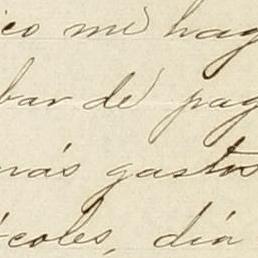 ico me hag
bar de pag
más gastos
coles, día